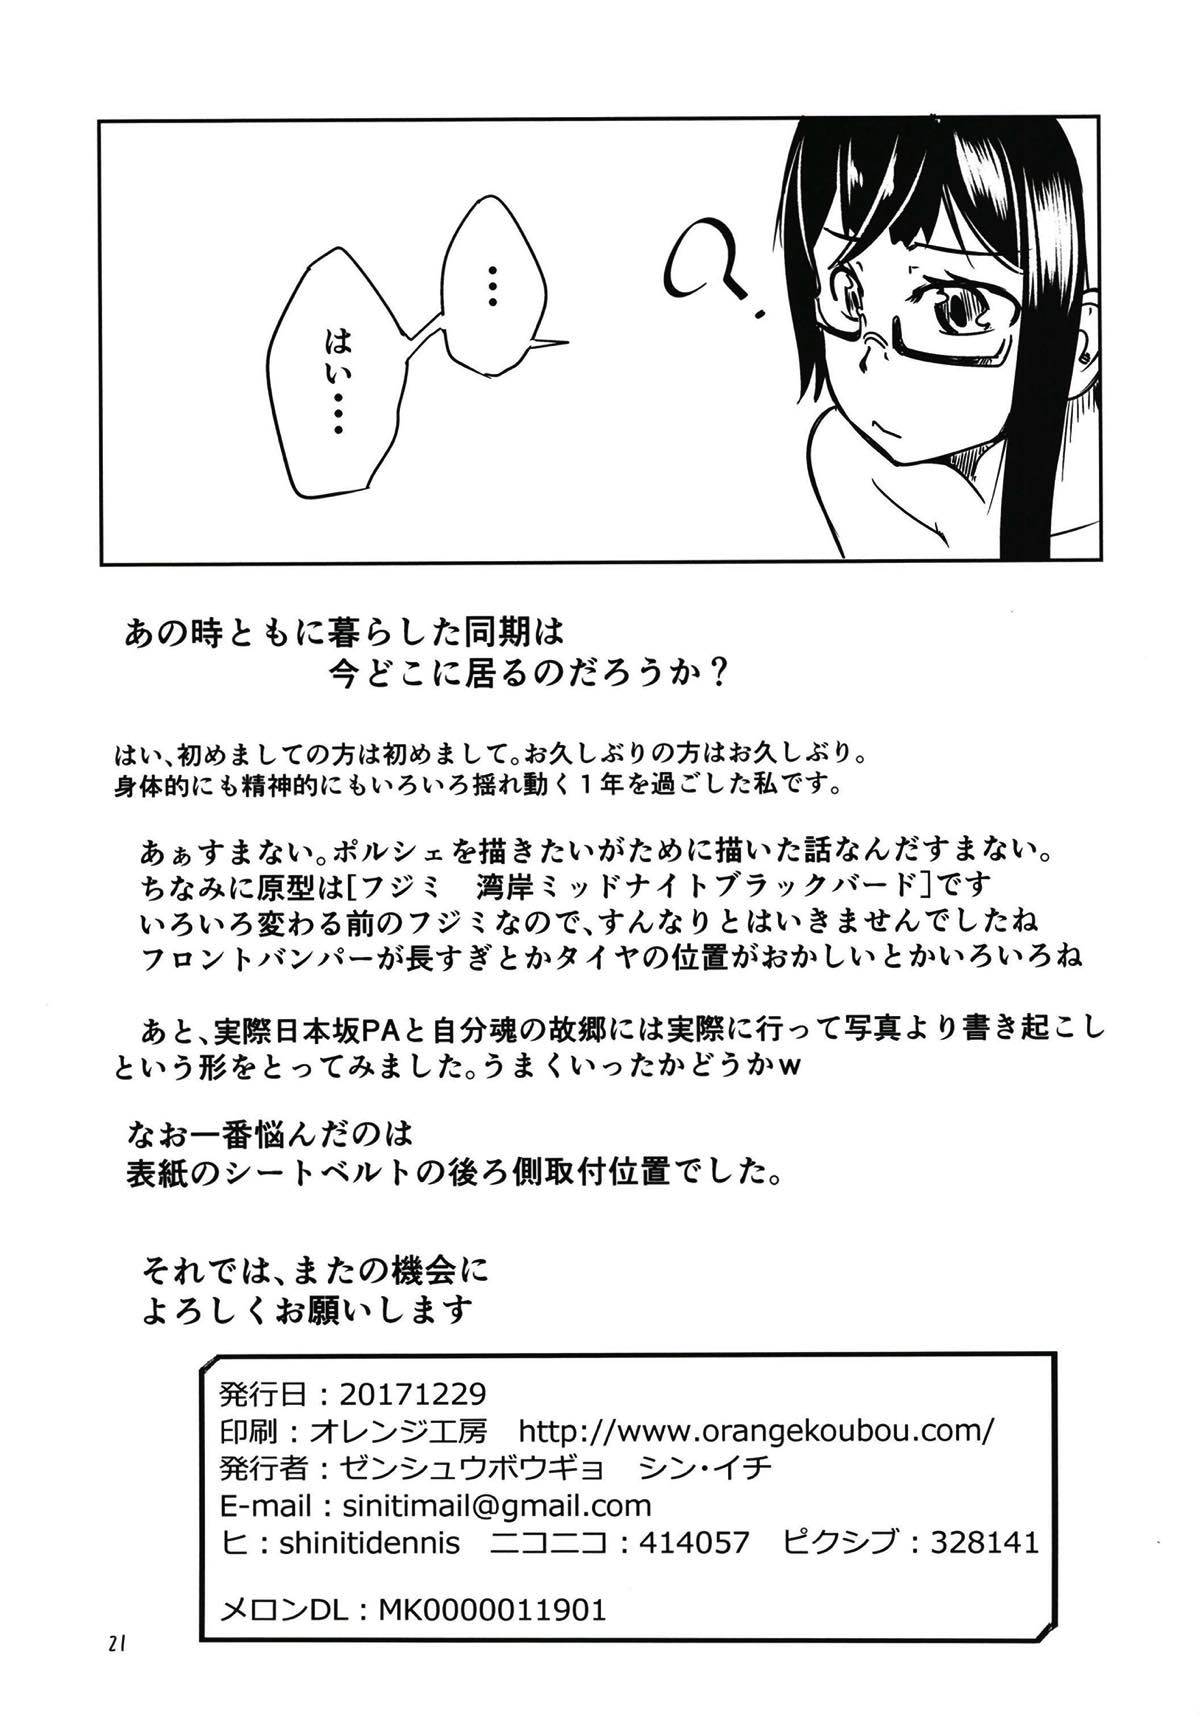 ?
…
はい…
あの時ともに暮らした同期は
今どこに居るのだろうか？
はい、初めましての方は初めまして。お久しぶりの方はお久しぶり。
身体的にも精神的にもいろいろ揺れ動く１年を過ごした私です。
あぁすまない。ポルシェを描きたいがために描いた話なんだすまない。
ちなみに原型は[フジミ　湾岸ミッドナイトブラックバード]です
いろいろ変わる前のフジミなので、すんなりとはいきませんでしたね
フロントバンパーが長すぎとかタイヤの位置がおかしいとかいろいろね
あと、実際日本坂PAと自分魂の故郷には実際に行って写真より書き起こし
という形をとってみました。うまくいったかどうかｗ
なお一番悩んだのは
表紙のシートベルトの後ろ側取付位置でした。
それでは、またの機会に
よろしくお願いします
発行日：20171229
印刷：オレンジ工房　http://www.orangekoubou.com/
発行者：ゼンシュウボウギョ　シン・イチ
E-mail：sinitimail@gmail.com
ヒ：shinitidennis　ニコニコ：414057　ピクシブ：328141
メロンDL：MK0000011901
21